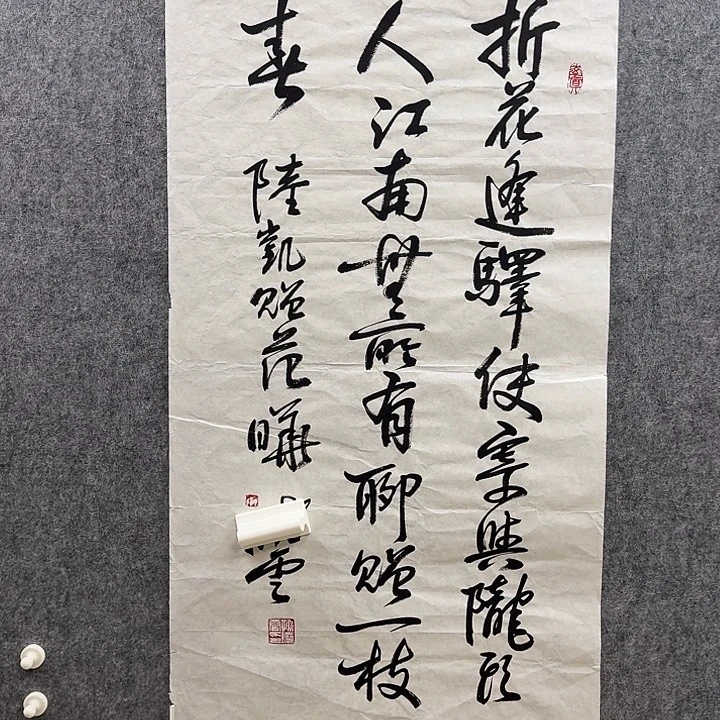 折花逢驛使寄與隴頭
人江南無所有聊贈一枝
春 陸凱贈范曄 雲